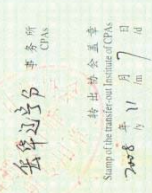 事务所
CPAs
转出协会盖章
Stamp of the transfer-out Institute of CPAs
2008年 11 月 7 日
/y /m /d